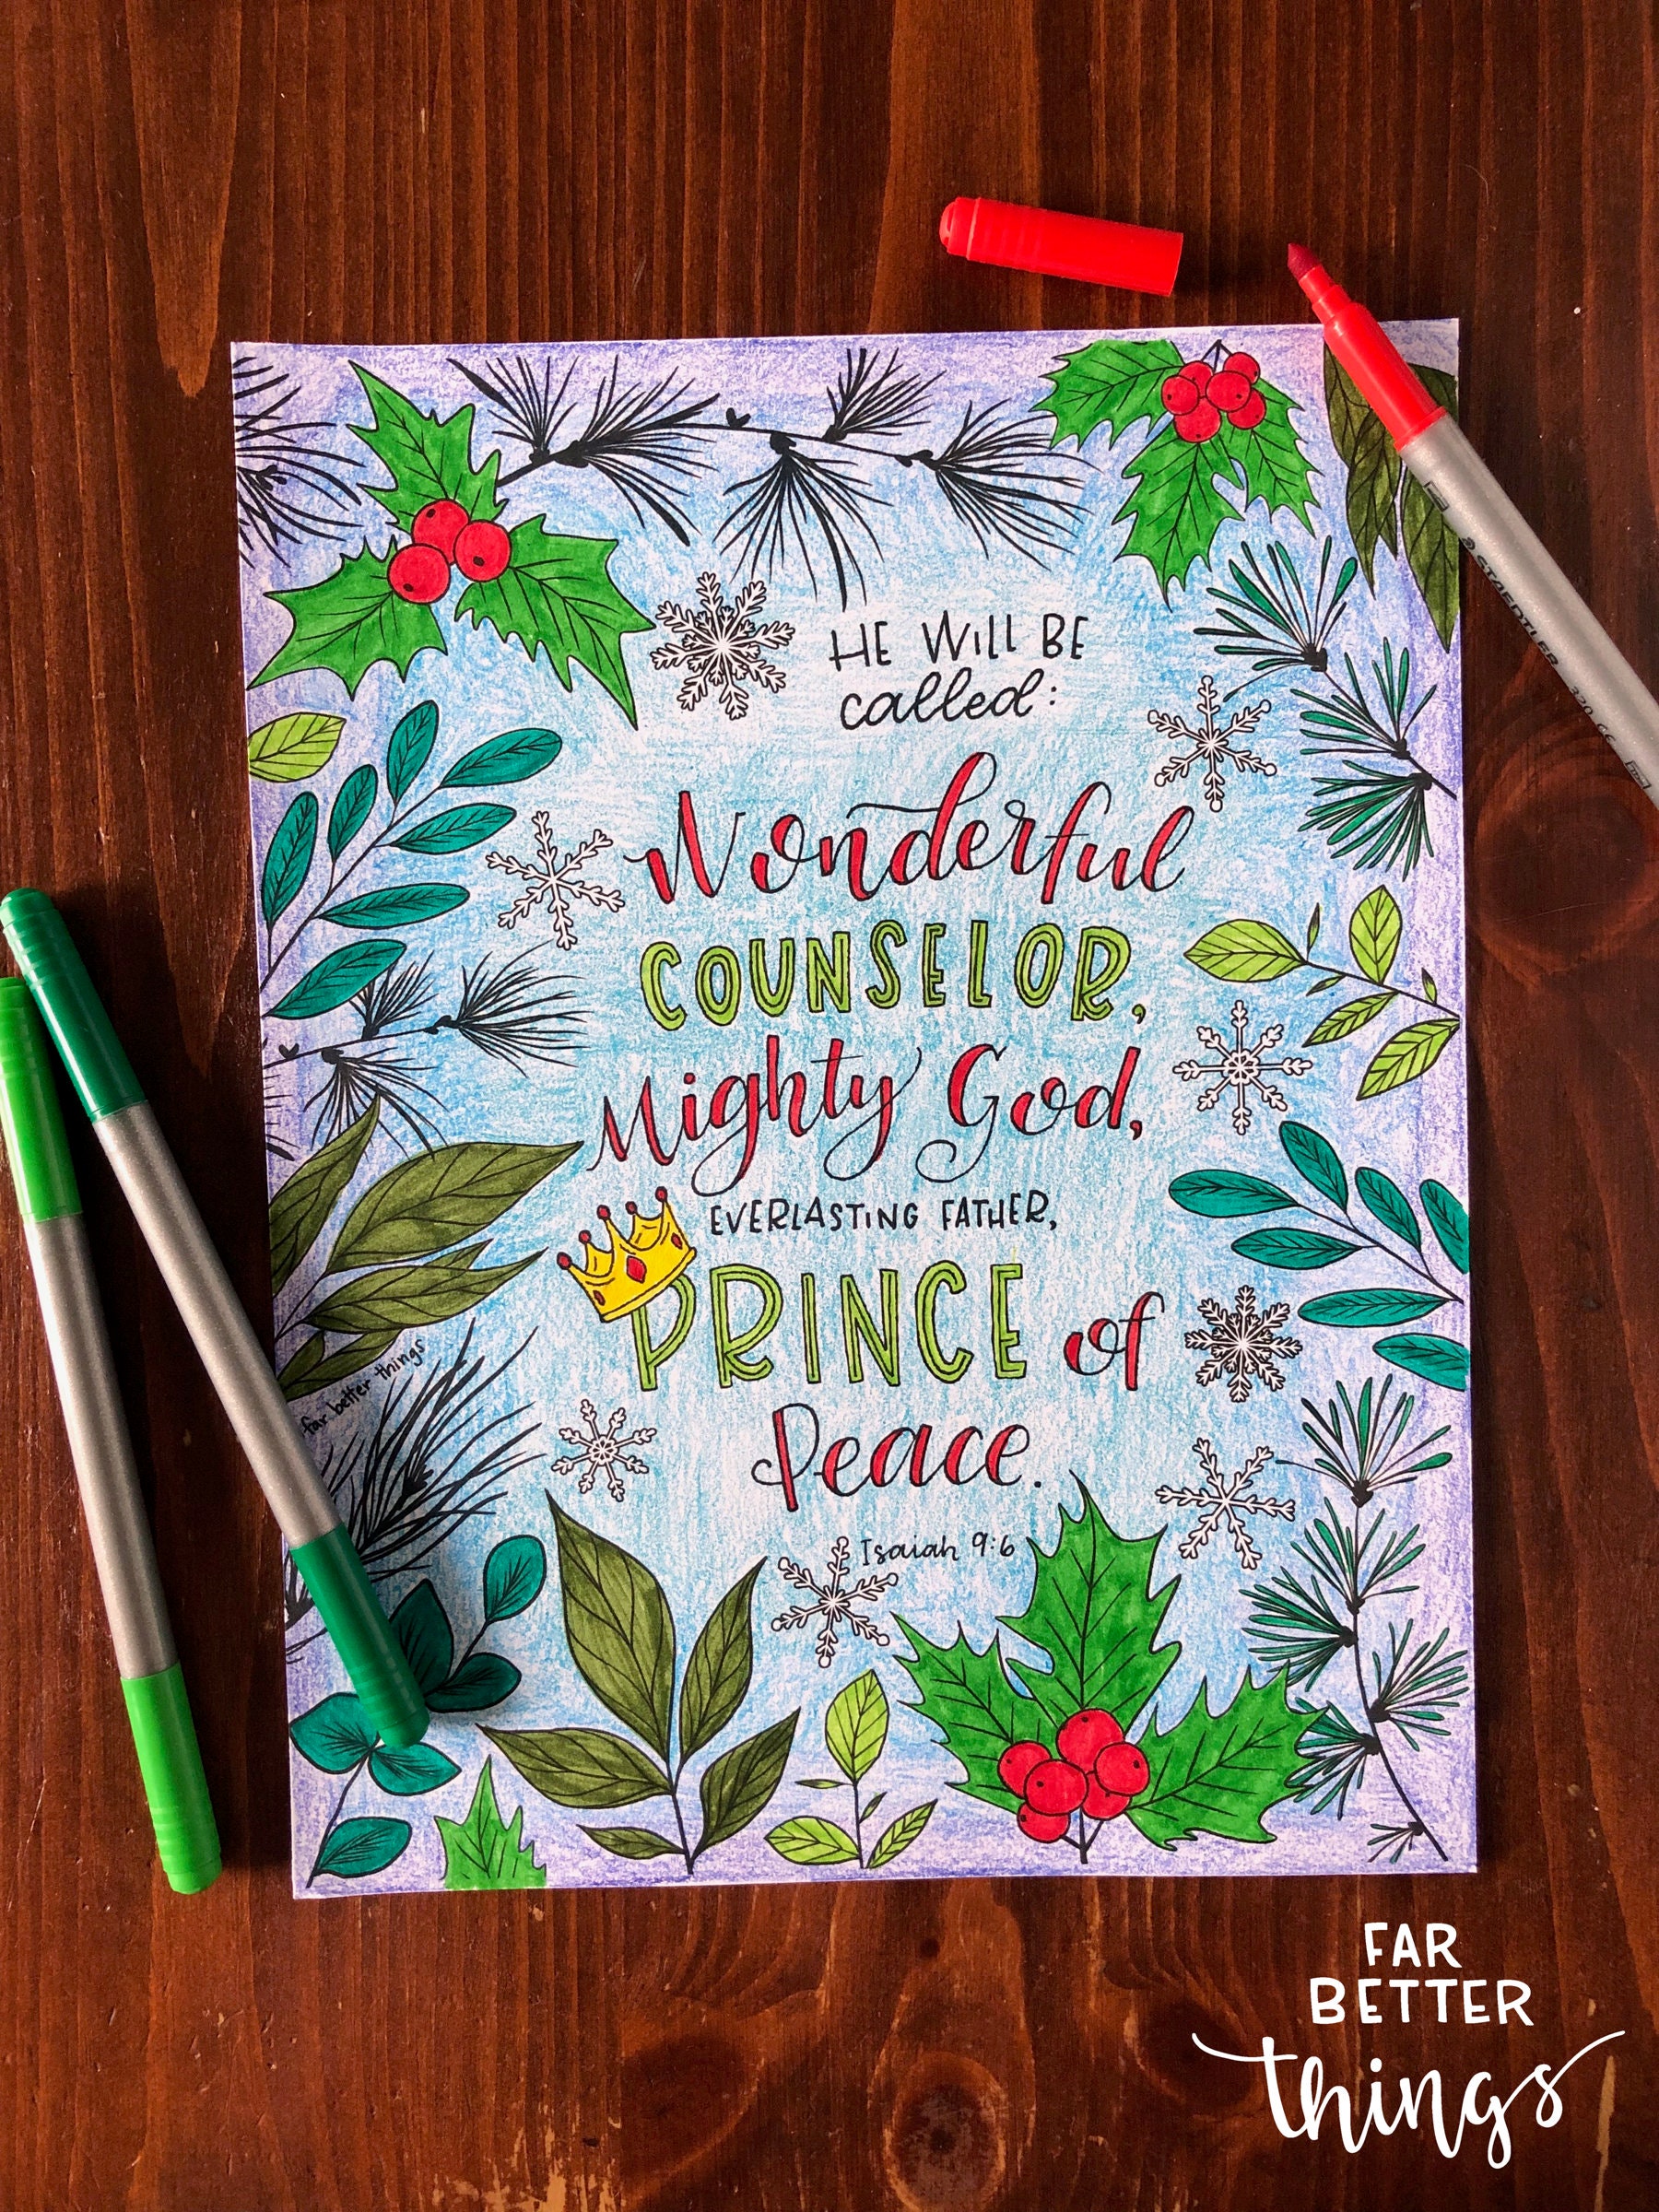 HE WILL BE
called:
Wonderful
COUNSELOR,
Mighty God,
EVERLASTING FATHER,
PRINCE of
Peace.
Isaiah 9:6
far better things
STAEDTLER 320
FAR
BETTER
things